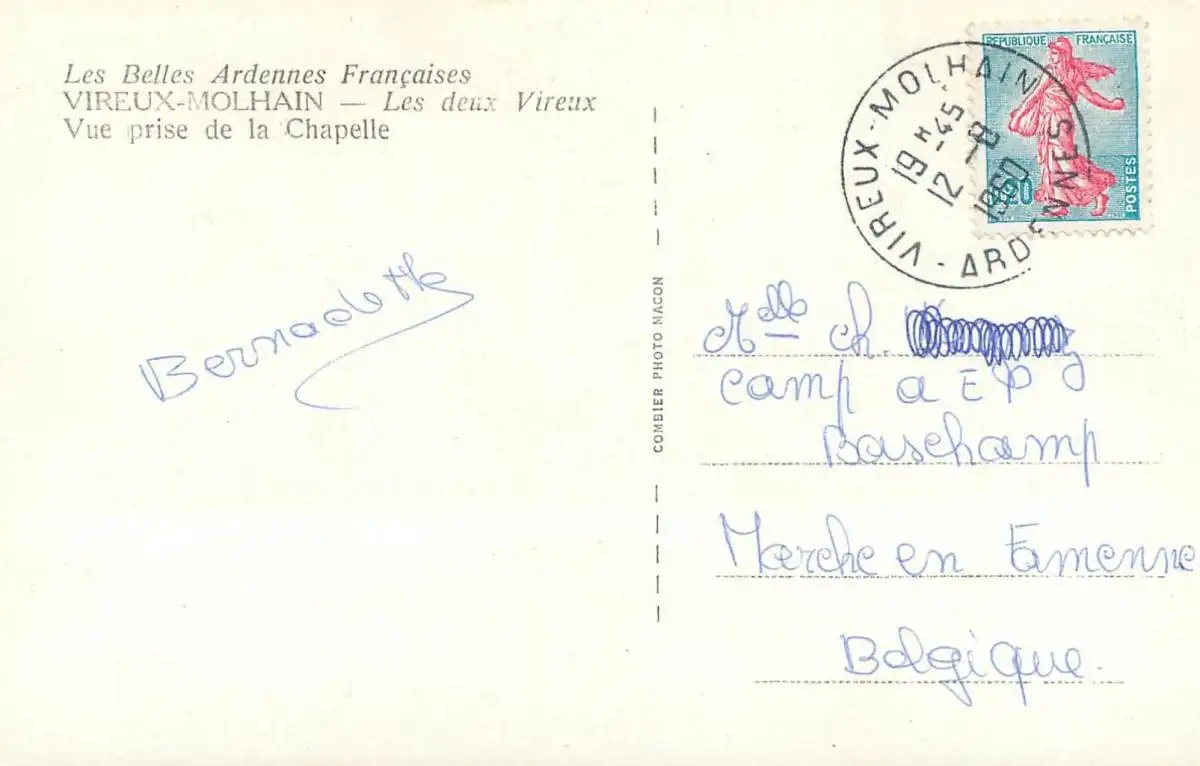 Les Belles Ardennes Françaises
VIREUX-MOLHAIN — Les deux Vireux
Vue prise de la Chapelle
Bernadette
COMBIER PHOTO MACON
REPUBLIQUE FRANÇAISE
0,20
POSTES
VIREUX-MOLHAIN - ARDENNES
19 H -45
12 -8
1960
Melle Ch.
Camp a E P
Baschamp
Marche en Famenne
Belgique.